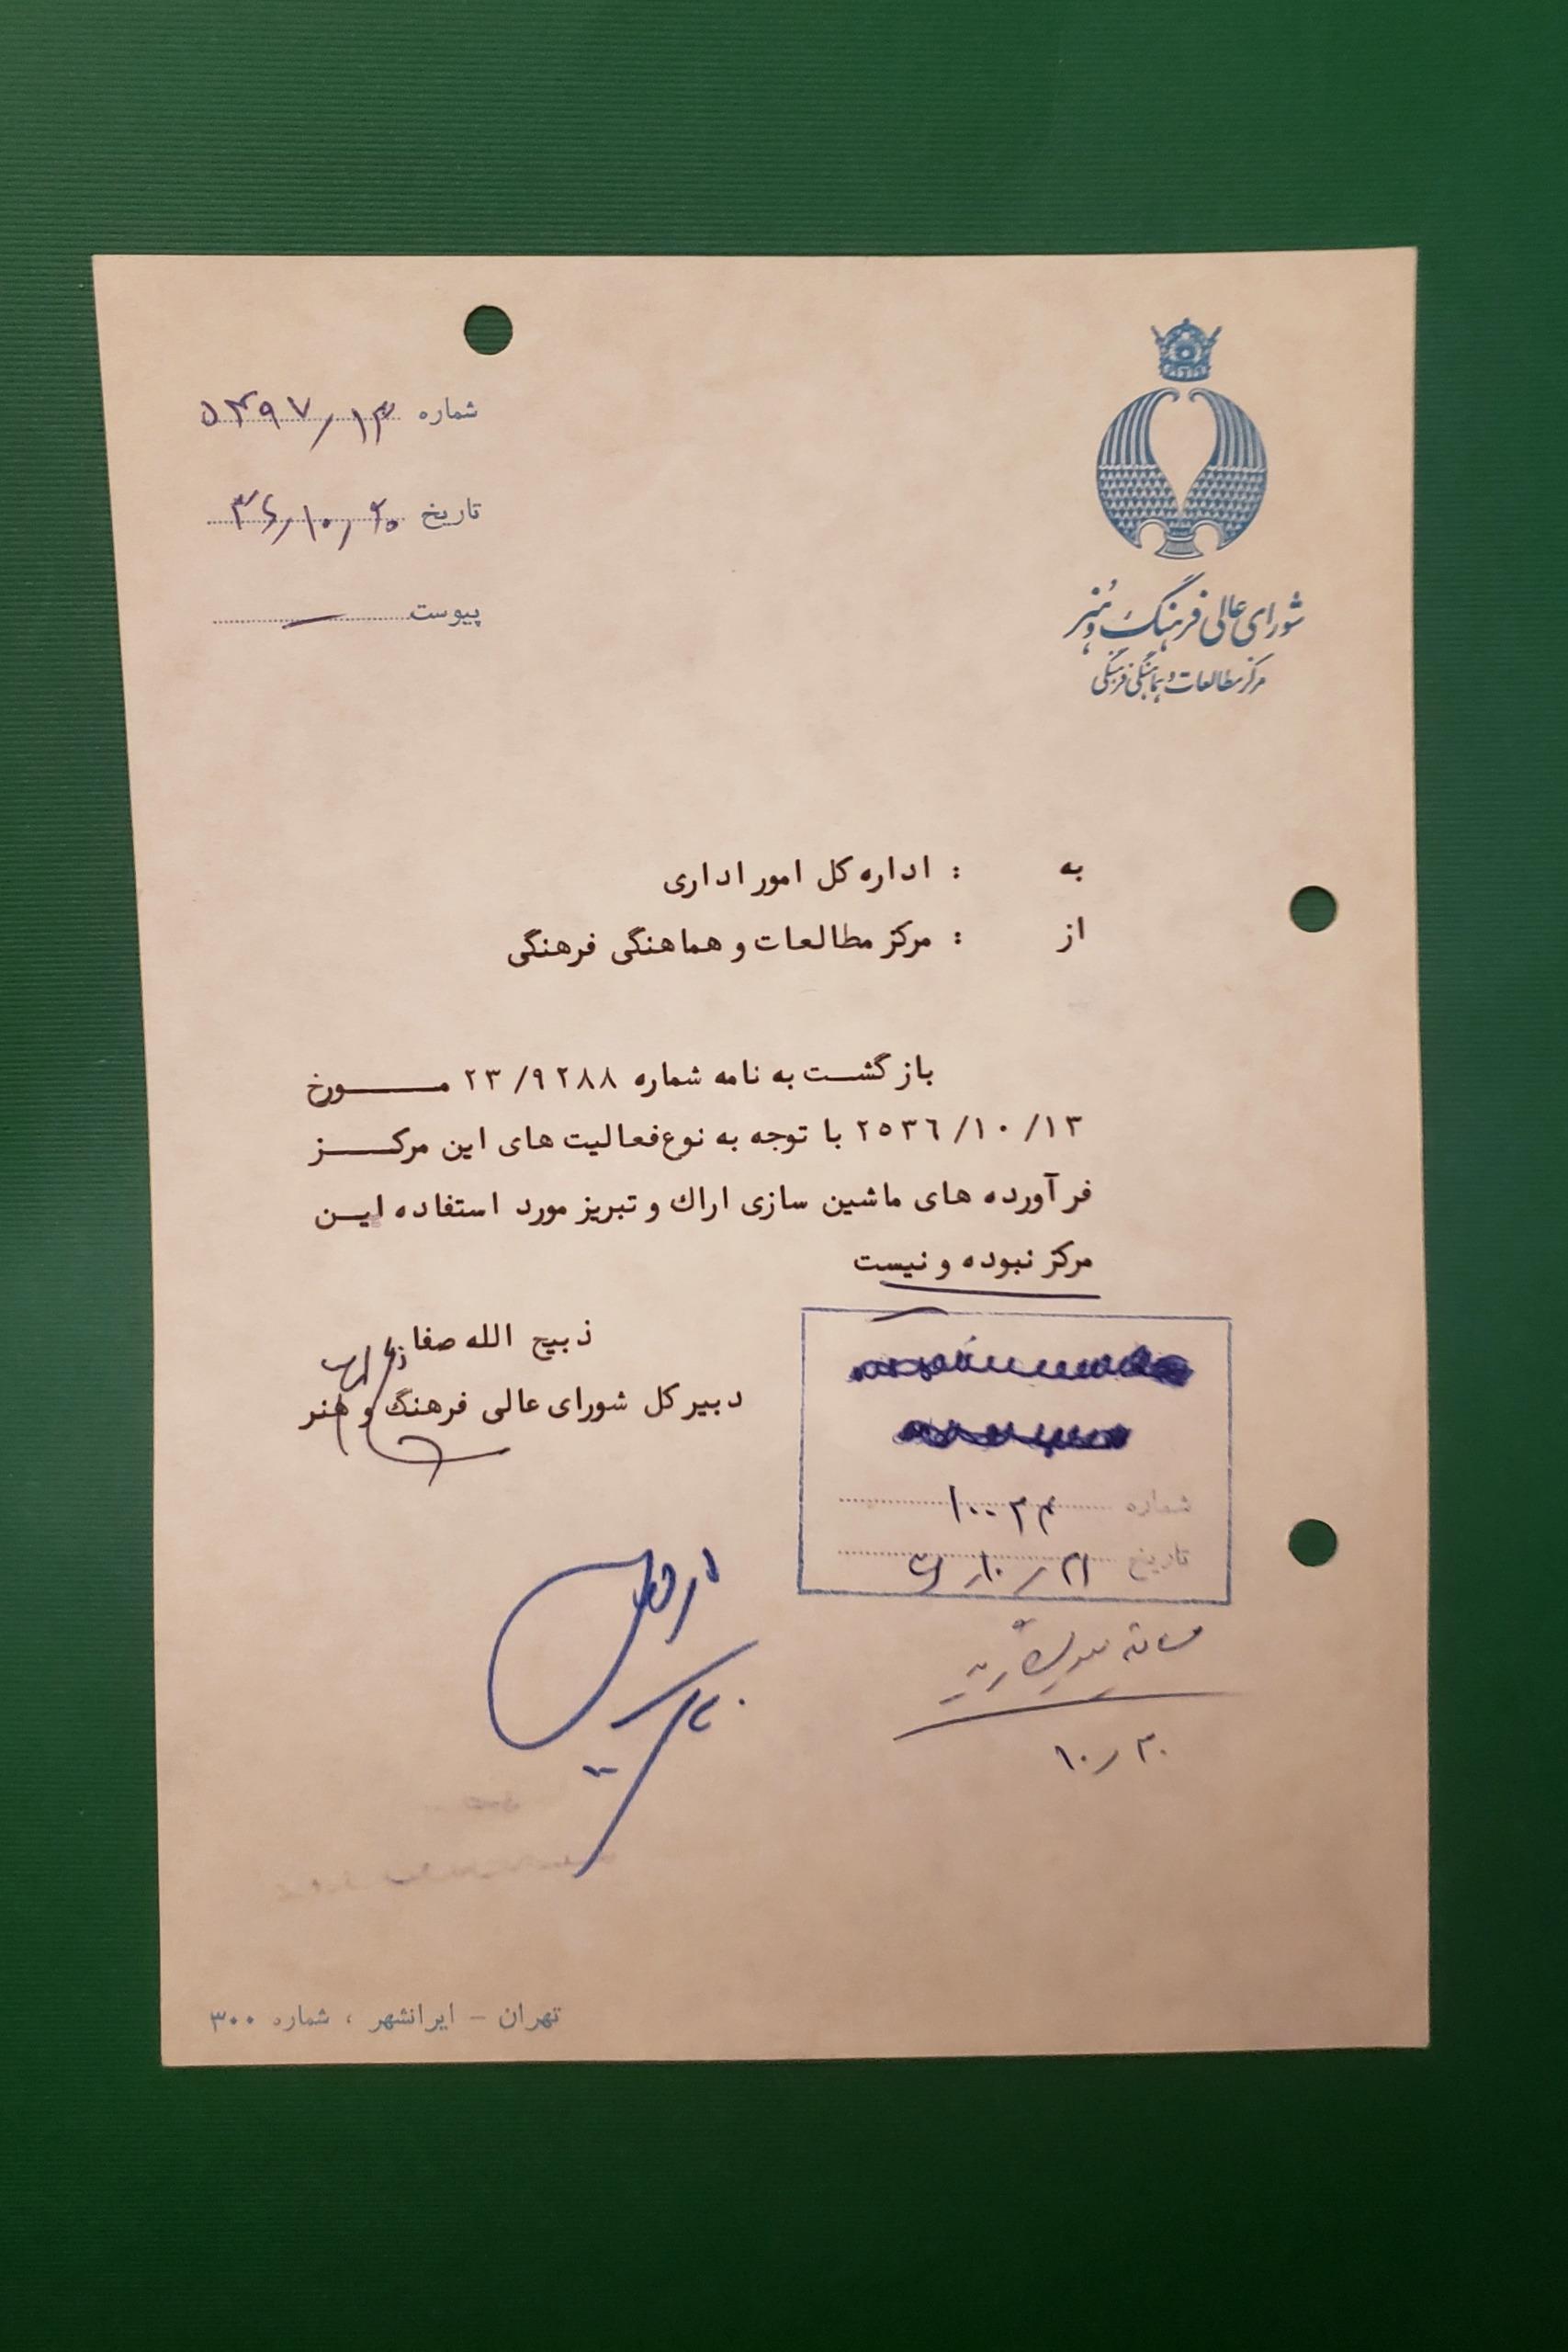 شورای عالی فرهنگ و هنر
مرکز مطالعات و هماهنگی فرهنگی
شماره ۵۴۹۷/۱۳
تاریخ ۳۶/۱۰/۲۰
پیوست
به : اداره کل امور اداری
از : مرکز مطالعات و هماهنگی فرهنگی
بازگشت به نامه شماره ۲۳/۹۲۸۸ مورخ
۲۵۳۶/۱۰/۱۳ با توجه به نوع فعالیت های این مرکز
فرآورده های ماشین سازی اراك و تبریز مورد استفاده این
مرکز نبوده و نیست
ذبیح الله صفا
دبیر کل شورای عالی فرهنگ و هنر
شماره
تاریخ ۳۶/۱۰/۲۱
۱۰/۲۰
تهران - ایرانشهر ، شماره ۳۰۰